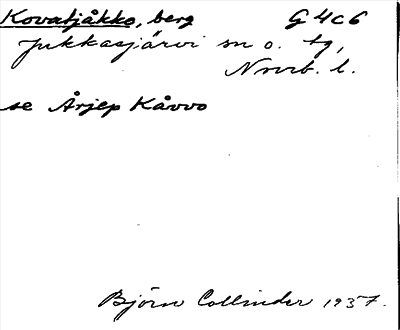 Kovatjåkko, berg G 4c6
Jukkasjärvi sn o. tg,
Norrb. l.
se Årjep Kåvvo
Björn Collinder 1937.